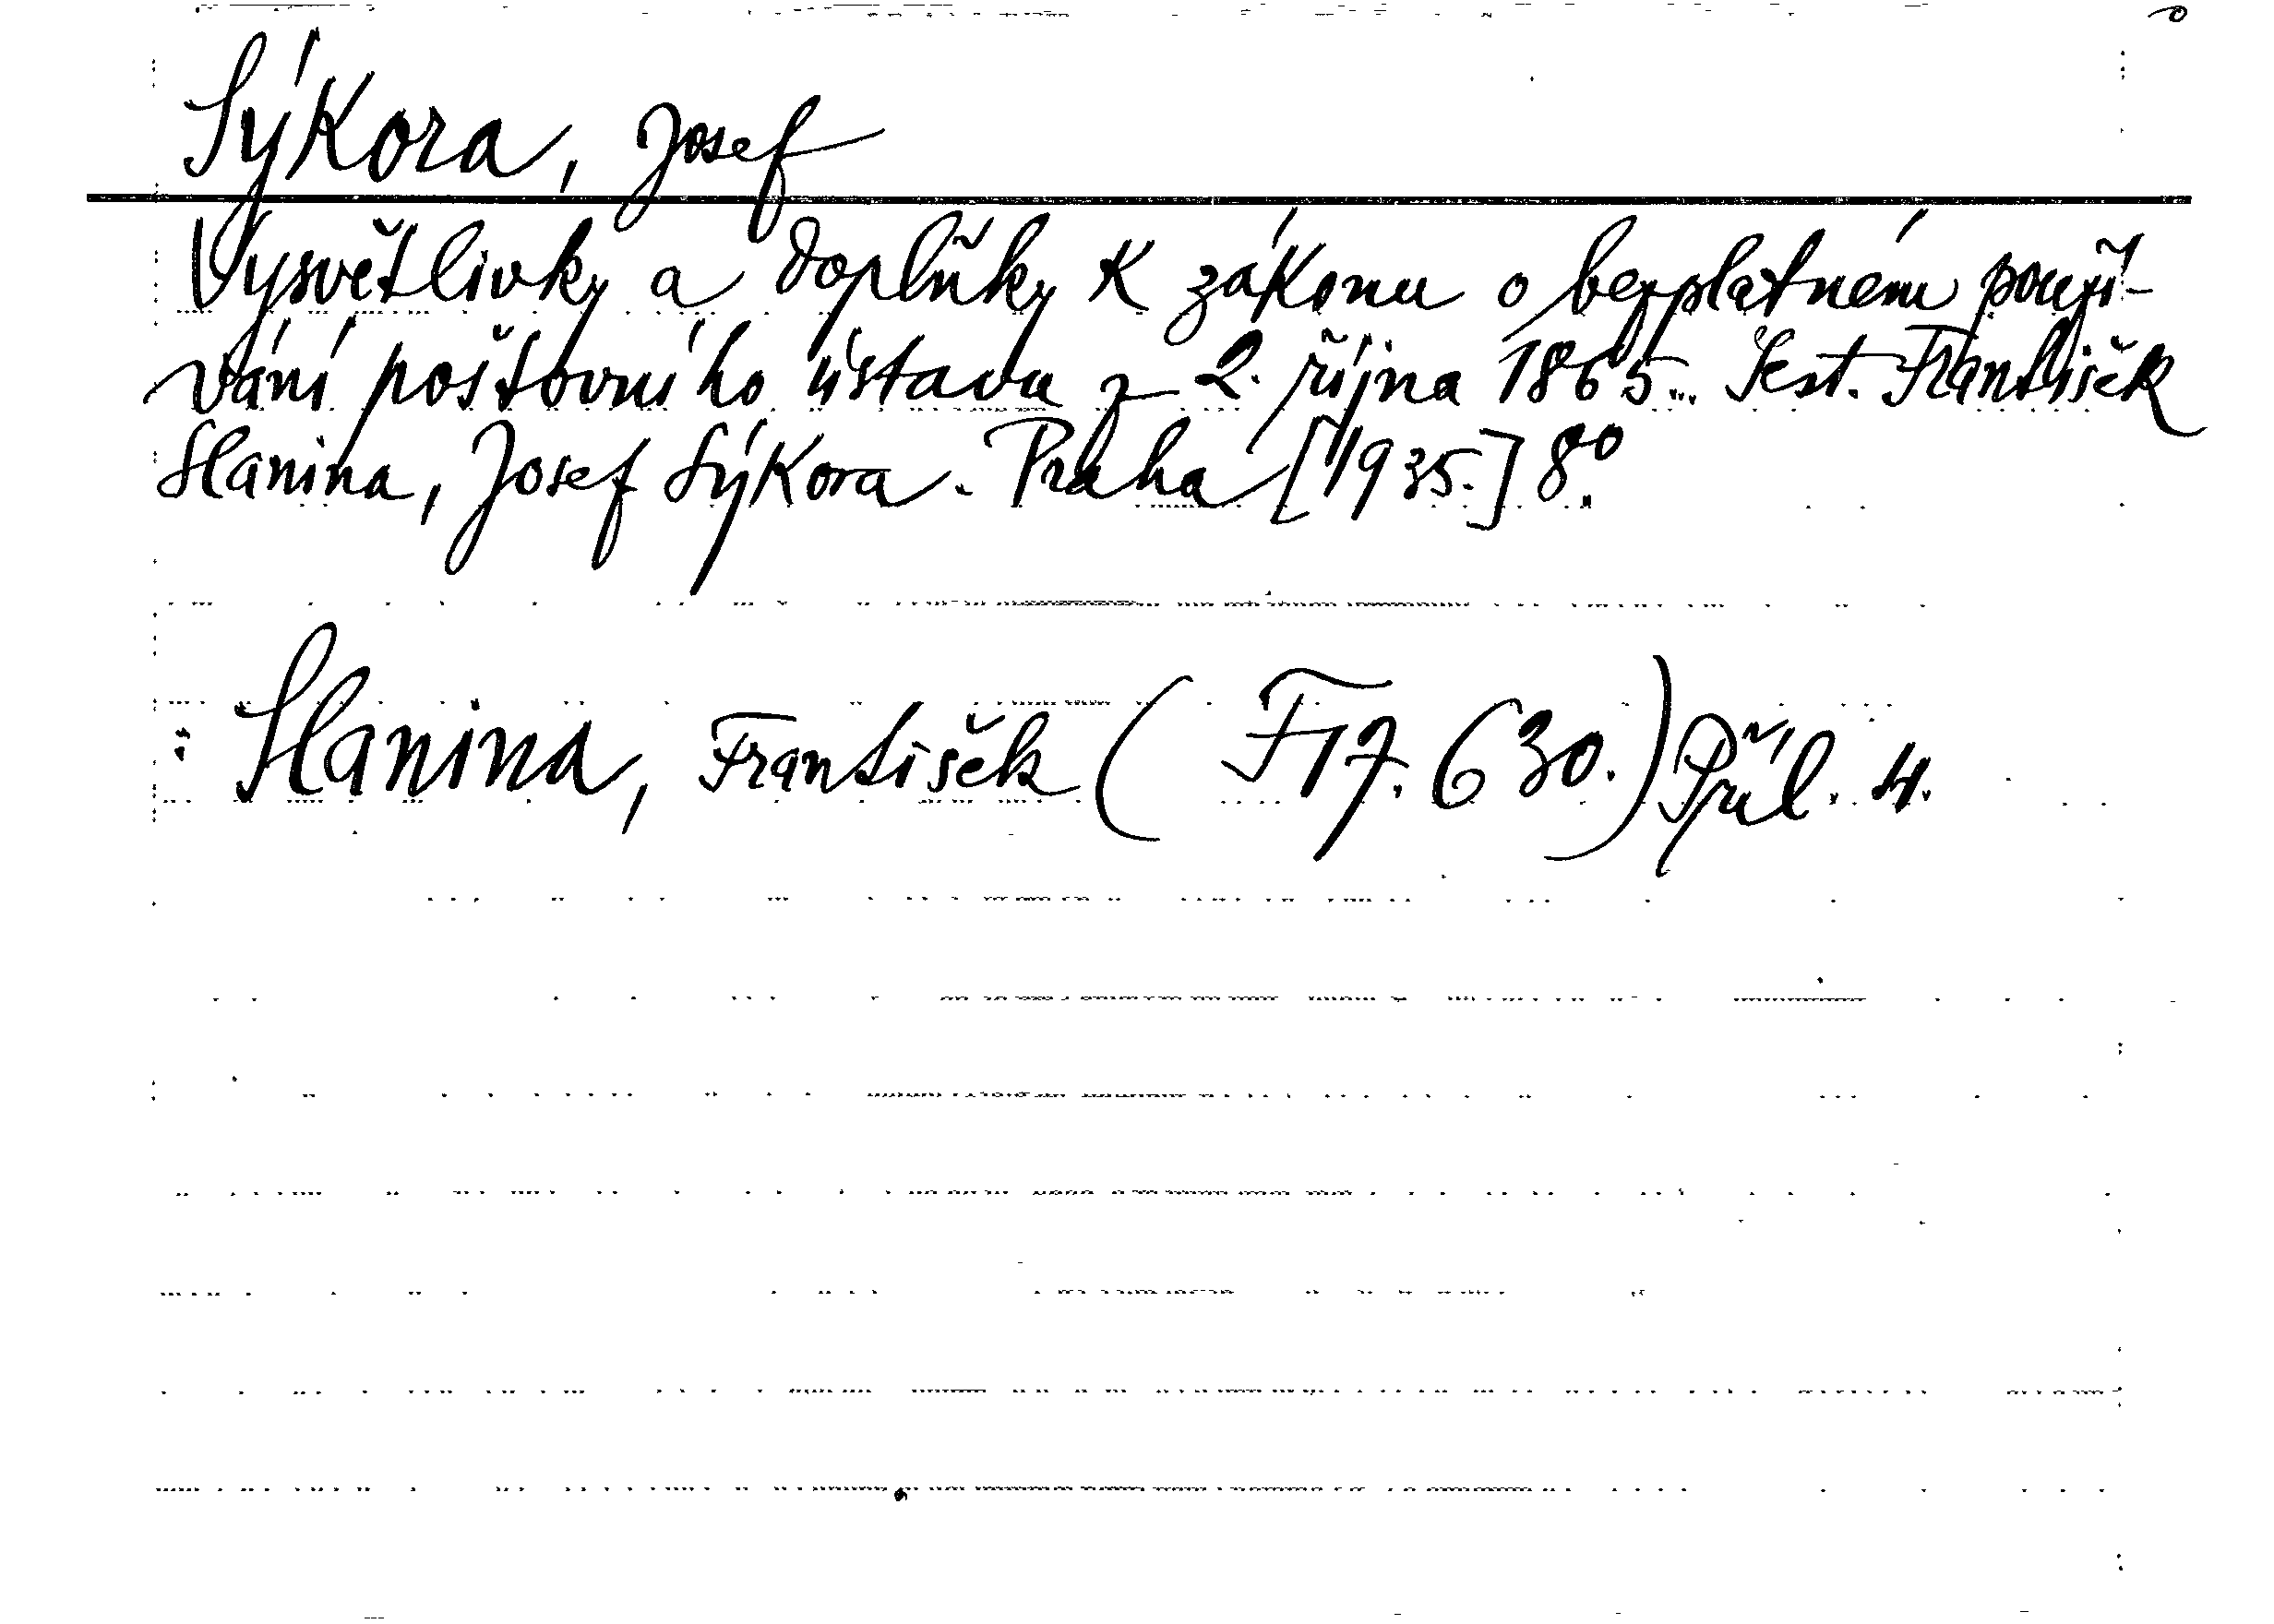 Sýkora, Josef
Vysvětlivky a doplňky k zákonu o bezplatném použí-
vání poštovního ústavu z 2. října 1865... Sest. František
Slanina, Josef Sýkora. Praha [1935.] 8°.
: Slanina, František (F 17. 630.) Příl. 4.